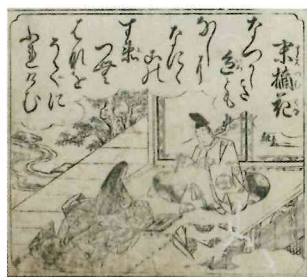 末摘花
なつかしき
色とも
なしに
なにに
この
すゑ
つむ
はなを
そでに
ふれけむ